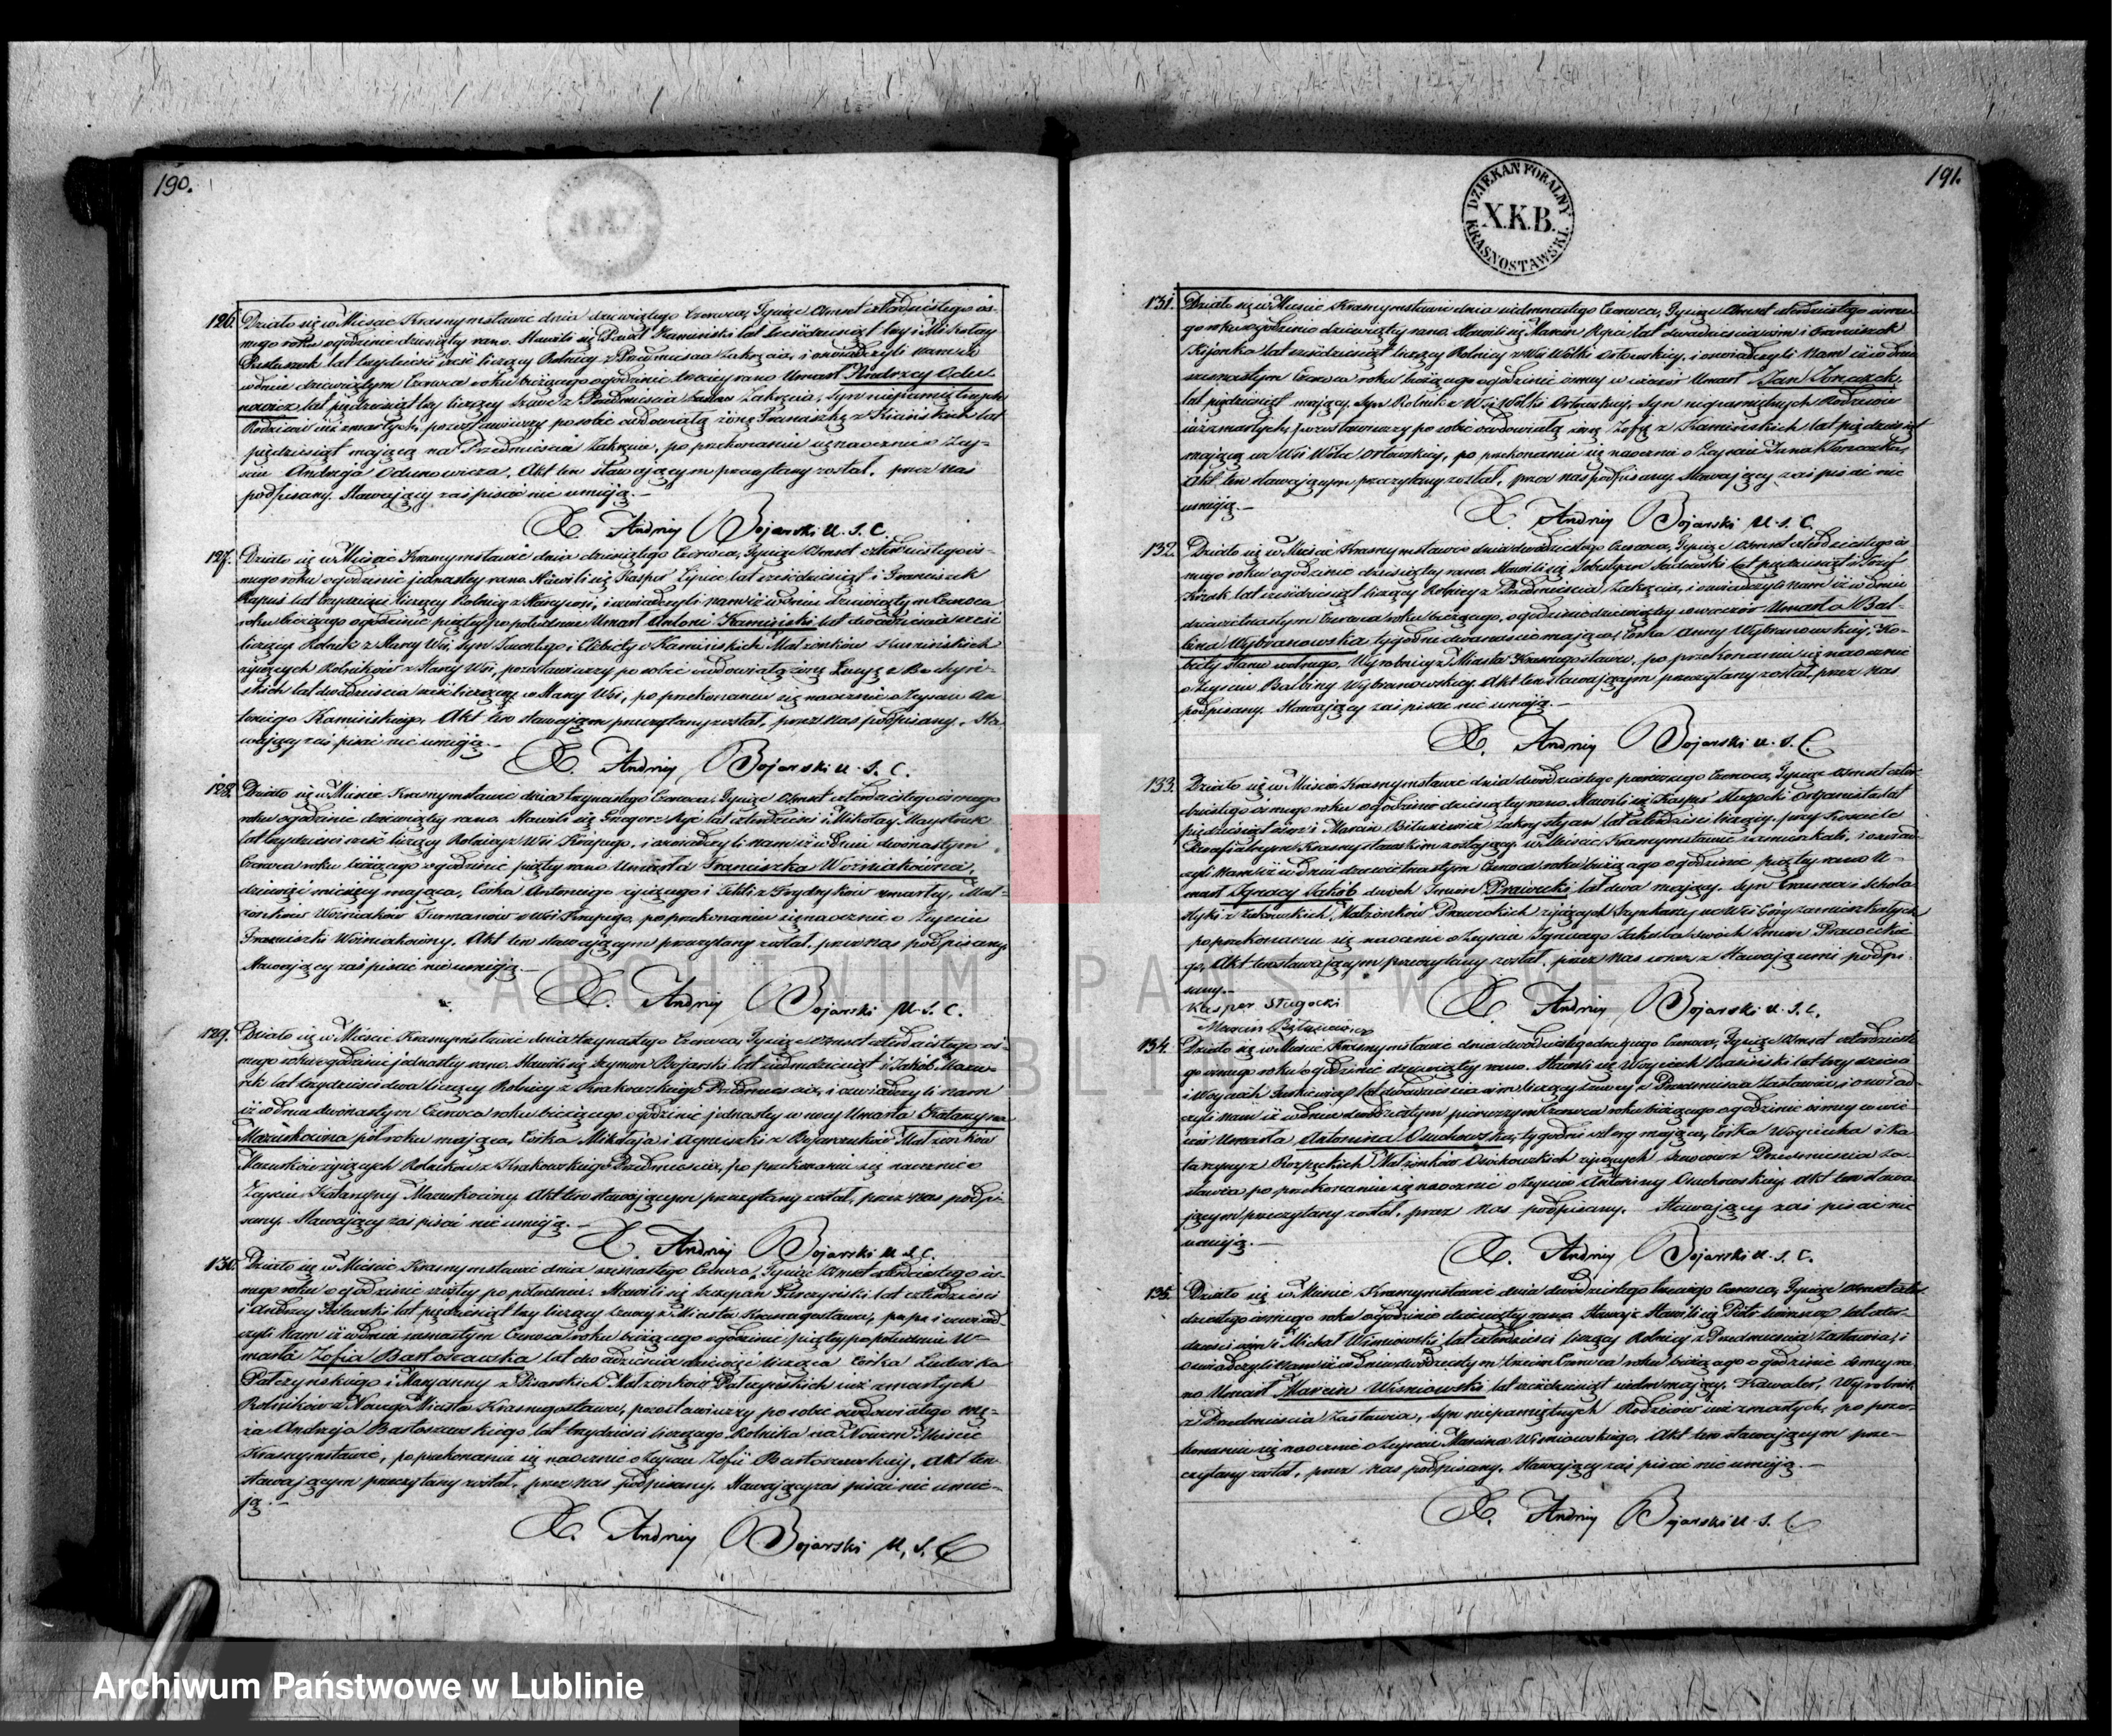 190.
126. Działo się w Mieście Krasnymstawie dnia dziewiątego Czerwca, Tysiąc Ośmset czterdziestego ós-
mego roku o godzinie dziesiąty rano. Stawili się Paweł Kamiński lat sześćdziesiąt trzy i Mikołay
lat trzydzieści sześć liczący Rolnicy z Przedmieścia Zakręcia, i oświadczyli nam iż
w dniu dziewiątym Czerwca roku bieżącego o godzinie trzeciey rano Umarł Andrzey Odu-
nowicz lat pięćdziesiąt trzy liczący Szewc z Przedmieścia Zakręcia, Syn niepamiętnych
Rodziców już zmarłych, pozostawiwszy po sobie owdowiałą żonę Franciszkę z Kicińskich lat
pięćdziesiąt mającą na Przedmieściu Zakręciu, po przekonaniu się naocznie o Zey-
ściu Andrzeja Odunowicza. Akt ten stawającym przeczytany został, przez nas
podpisany. Stawający zaś pisać nie umieją.—
X. Andrzey Bojarski U. S. C.
127. Działo się w Mieście Krasnymstawie dnia dziesiątego Czerwca, Tysiąc Ośmset czterdziestego ós-
mego roku o godzinie jedenasty rano. Stawili się Kasper Lipiec lat sześćdziesiąt i Franciszek
Rapuś lat trzydzieści liczący Rolnicy z Stary wsi, i oświadczyli nam iż w dniu dziewiątym Czerwca
roku bieżącego o godzinie piąty po południu Umarł Antoni Kamiński lat dwadzieścia sześć
liczący Rolnik z Stary Wsi, Syn Jwentego i Elżbiety Kamińskich Małżonków Kamińskich
żyjących Rolników z Stary Wsi, pozostawiwszy po sobie owdowiałą żonę Łucyę z
skich lat dwadzieścia sześć liczącą w Stary Wsi, po przekonaniu się naocznie o Zeyściu An-
toniego Kamińskiego. Akt ten stawającym przeczytany został, przez nas podpisany. Sta-
wający zaś pisać nie umieją.—
X. Andrzey Bojarski U. S. C.
128. Działo się w Mieście Krasnymstawie dnia trzynastego Czerwca, Tysiąc Ośmset czterdziestego ósmego
roku o godzinie dziewiąty rano. Stawili się Grzegorz Ryć lat czterdzieści i Mikołay Maystruk
lat trzydzieści sześć liczący Rolnicy z Wsi Krupego, i oświadczyli nam iż w dniu dwunastym
Czerwca roku bieżącego o godzinie piąty rano Umarła Franciszka Woźniakówna,
dziewięć miesięcy mająca, Córka Antoniego żyjącego i Tekli z Frydryków zmarłey, Mał-
żonków Woźniaków Furmanów z Wsi Krupego, po przekonaniu się naocznie o Zeyściu
Franciszki Woźniakówny. Akt ten stawającym przeczytany został, przez nas podpisany
Stawający zaś pisać nie umieją.—
X. Andrzey Bojarski U. S. C.
129. Działo się w Mieście Krasnymstawie dnia trzynastego Czerwca, Tysiąc Ośmset czterdziestego ós-
mego roku o godzinie jedenasty rano. Stawili się Szymon Bojarski lat siedmdziesiąt i Jakób Mazu-
rek lat trzydzieści dwa liczący Rolnicy z Krakowskiego Przedmieścia, i oświadczyli nam
iż w dniu dwunastym Czerwca roku bieżącego o godzinie jedenasty w nocy Umarła Katarzyna
Mazurkówna pół roku mająca, Córka Mikołaja i Agnieszki z Bojarczuków Małżonków
Mazurków żyjących Rolników z Krakowskiego Przedmieścia, po przekonaniu się naocznie o
Zeyściu Katarzyny Mazurkówny. Akt ten stawającym przeczytany został, przez nas podpi-
sany. Stawający zaś pisać nie umieją.—
X. Andrzey Bojarski U. S. C.
130. Działo się w Mieście Krasnymstawie dnia szesnastego Czerwca, Tysiąc Ośmset czterdziestego ós-
mego roku o godzinie szósty po południu. Stawili się Szczepan lat czterdzieści
i Andrzey lat pięćdziesiąt trzy liczący Szewcy z Miasta Krasnegostawu, i oświad-
czyli nam iż w dniu szesnastym Czerwca roku bieżącego o godzinie piąty po południu U-
marła Zofia Bartoszewska lat dwadzieścia dziewięć licząca Córka Ludwika
Patczyńskiego i Maryanny z Pisarskich Małżonków Patczyńskich już zmarłych
Rolników z Nowego Miasta Krasnegostawu, pozostawiwszy po sobie owdowiałego mę-
ża Andrzeja Bartoszewskiego lat trzydzieści liczącego Rolnika na Nowem Mieście
Krasnymstawie, po przekonaniu się naocznie o Zeyściu Zofii Bartoszewskiey. Akt ten
stawającym przeczytany został, przez nas podpisany. Stawający zaś pisać nie umie-
ją.—
X. Andrzey Bojarski U. S. C.
191.
DZIEKAN FORALNY
X.K.B.
KRASNOSTAWSKI.
131. Działo się w Mieście Krasnymstawie dnia siedmnastego Czerwca, Tysiąc Ośmset czterdziestego ósme-
go roku o godzinie dziewiąty rano. Stawili się Marcin Rycei lat dwadzieścia ośm i Franciszek
Kijonka lat sześćdziesiąt liczący Rolnicy z Wsi Wólki Orłowskiey, i oświadczyli nam iż w dniu
szesnastym Czerwca roku bieżącego o godzinie ósmey w wieczór Umarł Jan
lat pięćdziesiąt mający, Syn Rolnik z Wsi Wólki Orłowskiey, Syn niepamiętnych Rodziców
już zmarłych, pozostawiwszy po sobie owdowiałą żonę Zofię z Kamińskich lat pięćdziesiąt
mającą we Wsi Wólce Orłowskiey, po przekonaniu się naocznie o Zeyściu Jana
Akt ten stawającym przeczytany został, przez nas podpisany. Stawający zaś pisać nie
umieją.—
X. Andrzey Bojarski U. S. C.
132. Działo się w Mieście Krasnymstawie dnia dwudziestego Czerwca, Tysiąc Ośmset czterdziestego ós-
mego roku o godzinie dziesiąty rano. Stawili się Sobestyan Sadowski lat pięćdziesiąt i Józef
lat sześćdziesiąt liczący Rolnicy z Przedmieścia Zakręcia, i oświadczyli nam iż w dniu
dziewiętnastym Czerwca roku bieżącego, o godzinie dziewiąty w wieczór Umarła Bal-
bina Wybranowska tygodni dwanaście mająca, Córka Anny Wybranowskiey, Ko-
biety stanu wolnego, Wyrobnicy z Miasta Krasnegostawu, po przekonaniu się naocznie
o Zeyściu Balbiny Wybranowskiey. Akt ten stawającym przeczytany został, przez nas
podpisany. Stawający zaś pisać nie umieją.—
X. Andrzey Bojarski U. S. C.
133. Działo się w Mieście Krasnymstawie dnia dwudziestego pierwszego Czerwca, Tysiąc Ośmset czter-
dziestego ósmego roku o godzinie dziesiąty rano. Stawili się Kasper Długocki Organista lat
pięćdziesiąt i Marcin Zakrystyan lat czterdzieści liczący, przy Kościele
Parafialnym Krasnostawskim zostający, w Mieście Krasnymstawie zamieszkali, i oświad-
czyli nam iż w dniu dziewiętnastym Czerwca roku bieżącego o godzinie piąty rano U-
marł Ignacy Jakób dwóch Imion Prawecki lat dwa mający, Syn Erazma i Schola-
styki z Małżonków Praweckich żyjących Szynkarzy we Wsi Góry zamieszkałych
po przekonaniu się naocznie o Zeyściu Ignacego Jakuba dwóch Imion Prawockie-
go. Akt ten stawającym przeczytany został, przez nas wraz z Stawającemi podpi-
sany.—
Kasper Długocki
Marcin
X. Andrzey Bojarski U. S. C.
134. Działo się w Mieście Krasnymstawie dnia dwudziestego drugiego Czerwca, Tysiąc Ośmset czterdzieste-
go ósmego roku o godzinie dziewiąty rano. Stawili się Woyciech lat trzydzieści
i Woyciech lat dwadzieścia ośm liczący Szewcy z Przedmieścia Zastawia, i oświad-
czyli nam iż w dniu dwudziestym pierwszym Czerwca roku bieżącego o godzinie ósmey w wie-
czór Umarła Antonina Duchowska, tygodni cztery mająca, Córka Woyciecha i Ka-
tarzyny z Rozpęckich Małżonków żyjących Szewców z Przedmieścia Za-
stawia, po przekonaniu się naocznie o Zeyściu Antoniny Duchowskiey. Akt ten stawa-
jącym przeczytany został, przez nas podpisany. Stawający zaś pisać nie
umieją.—
X. Andrzey Bojarski U. S. C.
135. Działo się w Mieście Krasnymstawie dnia dwudziestego trzeciego Czerwca, Tysiąc Ośmset czter-
dziestego ósmego roku o godzinie dziewiąty rano. Stawili się Piotr lat czter-
dzieści ośm i Michał Wiśniowski lat czterdzieści liczący Rolnicy z Przedmieścia Zastawia, i
oświadczyli nam iż w dniu dwudziestym trzecim Czerwca roku bieżącego o godzinie ósmey ra-
no Umarł Marcin Wiśniowski lat sześćdziesiąt siedm mający, Kawaler, Wyrobnik
z Przedmieścia Zastawia, Syn niepamiętnych Rodziców już zmarłych, po prze-
konaniu się naocznie o Zeyściu Marcina Wiśniowskiego. Akt ten stawającym prze-
czytany został, przez nas podpisany. Stawający zaś pisać nie umieją.—
X. Andrzey Bojarski U. S. C.
ARCHIWUM PAŃSTWOWE
LUBLIN
Archiwum Państwowe w Lublinie